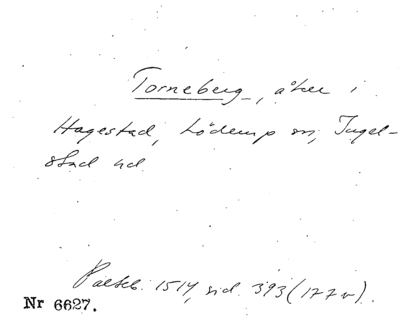 Torneberg, åker i
Hagestad, Löderup sn, Ingel-
stad hd
Palteb. 1514, sid. 393 (177 v).
Nr 6627.